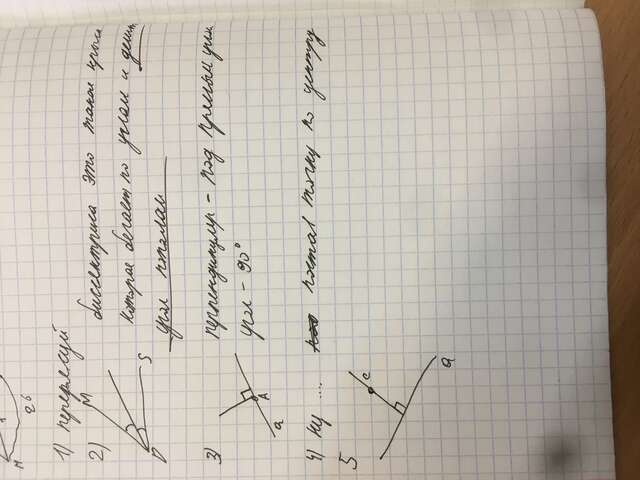 M
a б
1) перерисуй
2) M
P
S
биссектриса это такая крыса
которая бегает по углам и делит
угол пополам
3)
a
A
перпендикуляр - под прямым углом
угол - 90°
4) ну ... постав точку по центру
5
c
a